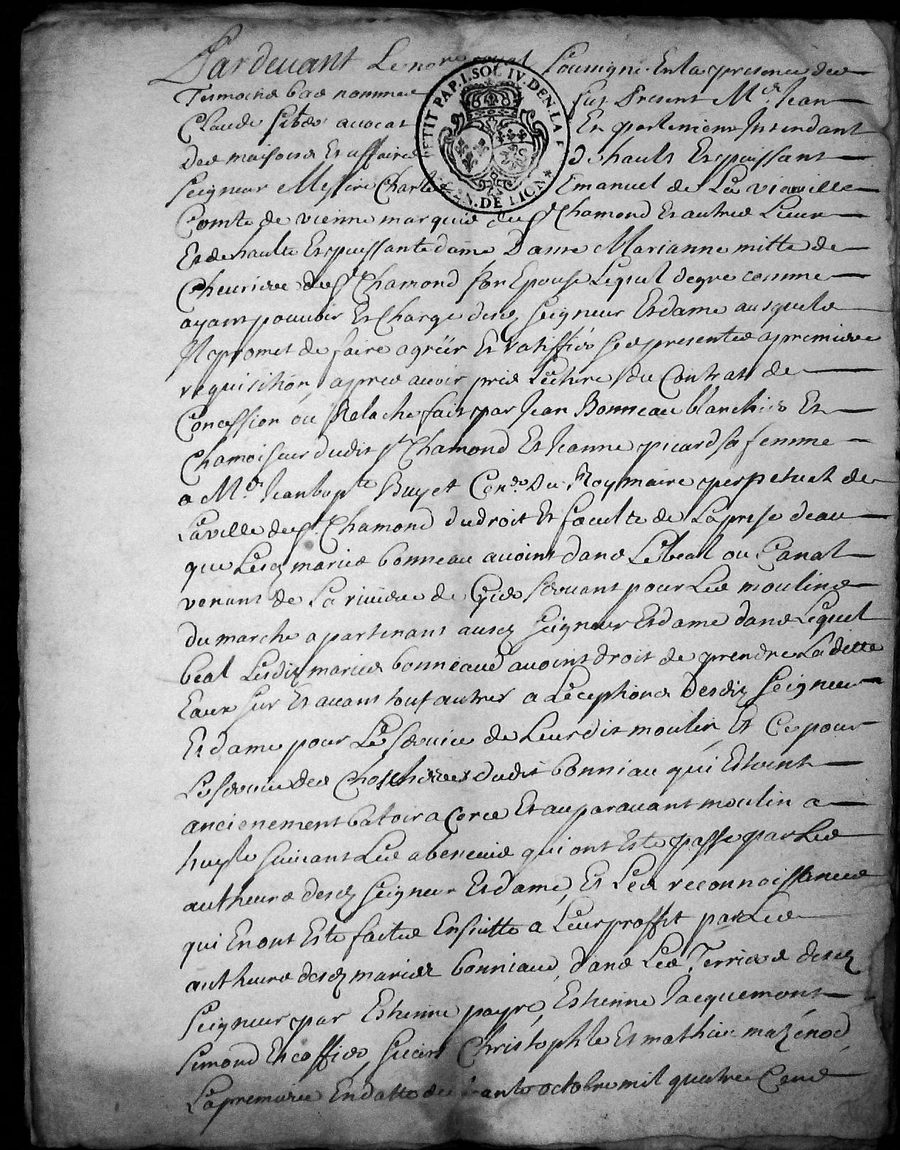 Pardevant Le no.re royal Soussigné En la presence des
Tesmoins bas nommes fut Present M.e Jean
Claude avocat En parlement Intendant
des maisons Et affaires de hault Et puissant
Seigneur Messire Charles Emanuel de La vieuville
Comte de vienne marquis de S.t Chamond Et autres Lieux
Et de haulte Et puissante dame Dame Marianne mitte de
Cheurieres de S.t Chamond son Epouse Lequel de gre comme
ayant pouvoir Et Charge desd Seigneur Et dame ausquels
Il promet de faire agréér Et ratiffiér Ses presentes a premiere
requisition, apres avoir pris Lecture du Contrat de
Concession ou Relache fait par Jean Bonneau blanchier Et
Chamoiseur dudit S.t Chamond Et Jeanne picard sa femme
a M.e Jean bap.te Buyet Con.er Du Roy maire perpetuel de
La ville de S.t Chamond du droit Et faculte de La prise deau
que Lesd mariés bonneau avoint dans Le beal ou Canal
venant de La riviere de Gier Servant pour Les moulins
du marche apartenant ausd Seigneur Et dame dans Lequel
beal Lesdiz mariés bonneaud avoint droit de prendre La ditte
Eaux Sur Et avant tout autres a Lecephtion desdiz Seigneur
Et dame pour Le Service de Leurdit moulin, Et Ce pour
Le Service des dudit bonniau qui Estoint
anciennement batoir a Corce Et auparavant moulin a
huylle Suivant Les abenevis qui ont Este passe par Les
autheurs desd Seigneur Et dame, Et Les reconnoissances
qui En ont Este faites Ensuitte a Leur proffit par Les
autheurs desd mariez bonniaud, dans Les Terriers desd
Seigneur par Estienne payre, Estienne Jacquemont
Simond Christophle Et mathieu mazénod,
La premiere En datte du octobre mil quatre Cens
PETIT PAP. I. SOL IV. DEN. LA F.
GEN. DE LION